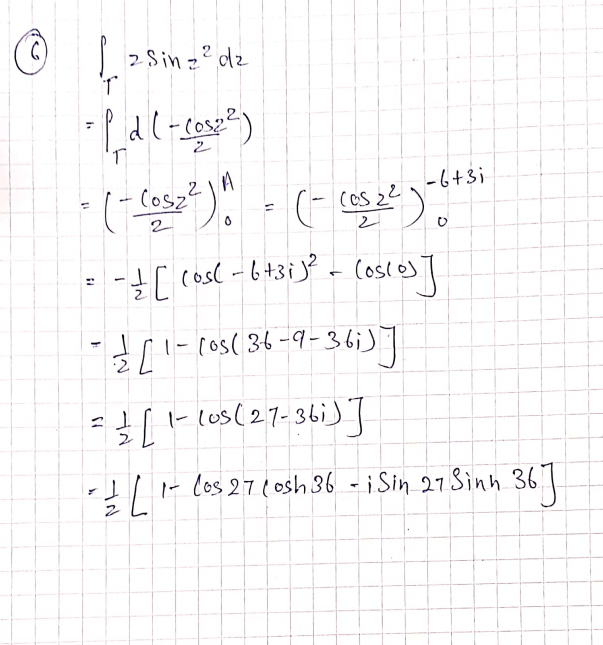 6 ∫_T z Sin z² dz
= ∫_T d(-cosz²/2)
= (-Cosz²/2)₀^A = (-cos z²/2)₀^-6+3i
= -1/2 [cos(-6+3i)² - Cos(0)]
= 1/2 [1-cos(36-9-36i)]
= 1/2 [1-cos(27-36i)]
= 1/2 [1- Cos 27 Cosh 36 - i Sin 27 Sinh 36]